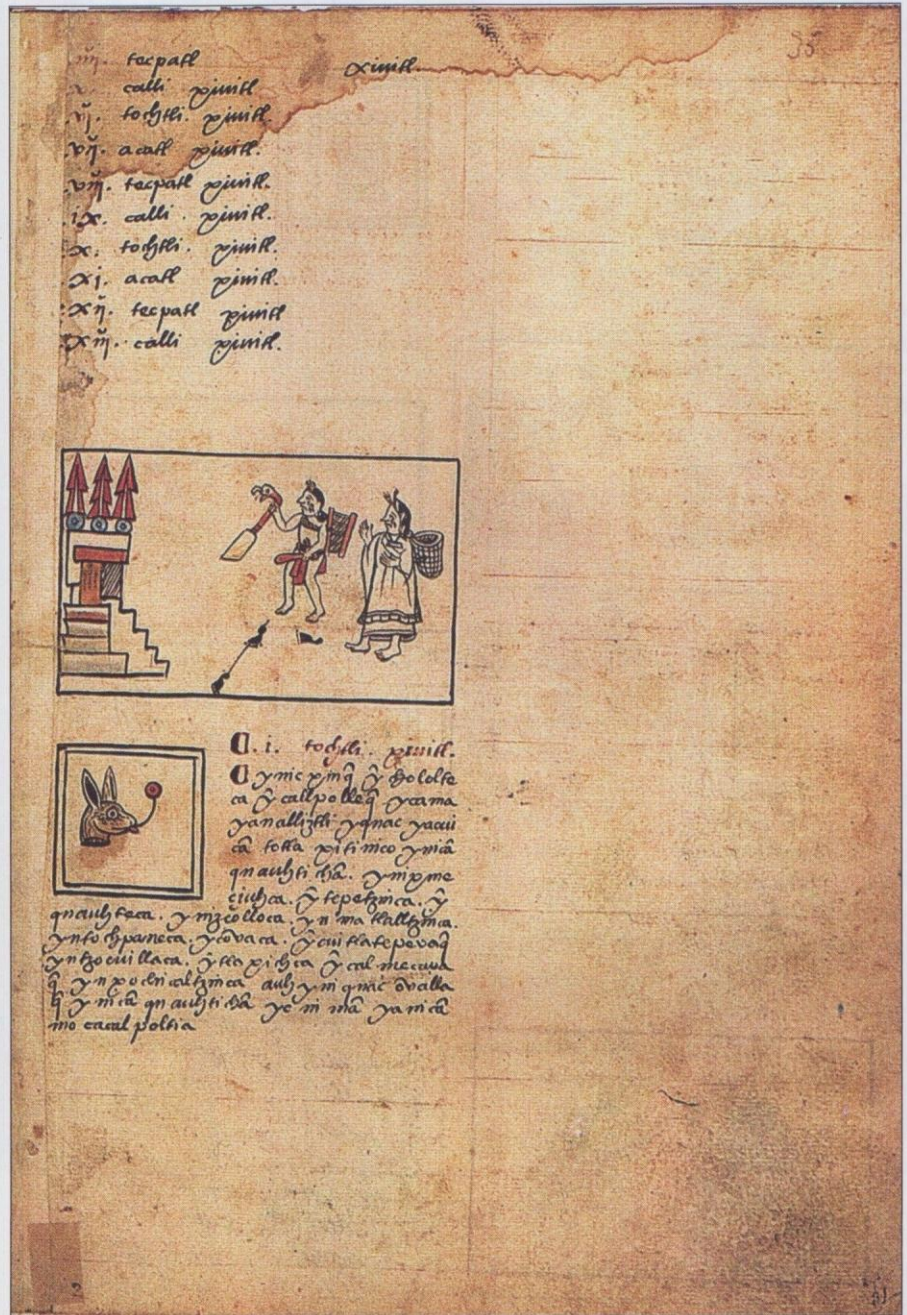 35
iiij. tecpatl xiuitl.
v. calli xiuitl
vj. tochtli. xiuitl.
vij. acatl xiuitl.
viij. tecpatl xiuitl.
ix. calli. xiuitl.
x. tochtli. xiuitl.
xj. acatl xiuitl.
xij. tecpatl xiuitl
xiij. calli xiuitl.
.i. tochtli. xiuitl.
ynic xinq̄ ȳ chololte
ca ȳ callpolleq̄ ycama
yanalliztli yquac yacui
cā totla xitinico ynicā
quauhtichā. ynixme
ciuhca. ȳ tepetzinca. ȳ
quauhteca. ynizcolloca. yn matlalltzinca.
yntochpaneca. ycōvaca. ȳcuitlatepevaq̄
yntzocuillaca. ȳtlapichca ȳcalmecava
q̄ ynpochicaltzinca auh yni quac ōvalla
q̄ ynicā quauhtichā ye ni mā ya nicā
mo cacalpoltia
2